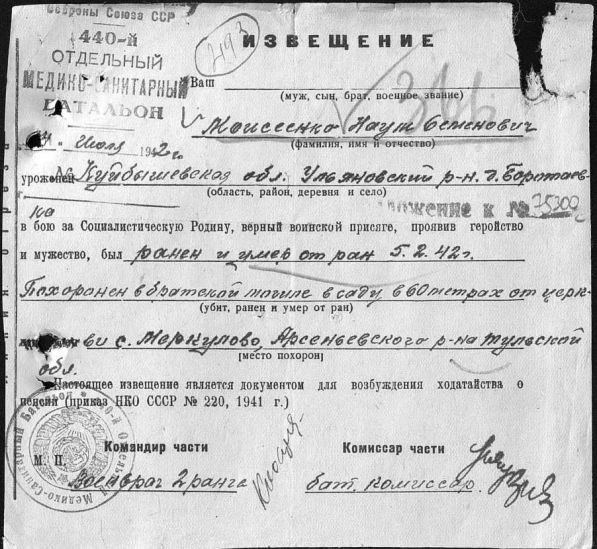 Обороны Союза ССР
440-й
ОТДЕЛЬНЫЙ
МЕДИКО-САНИТАРНЫЙ
БАТАЛЬОН
Июля 1942г.
2193
ИЗВЕЩЕНИЕ
Ваш
(муж, сын, брат, военное звание)
Моисеенко Наум Семенович
(фамилия, имя и отчество)
уроженец Куйбышевская обл. Ульяновский р-н. д. Боротаев-
(область, район, деревня и село)
ка
к № 75300
в бою за Социалистическую Родину, верный воинской присяге, проявив геройство
и мужество, был ранен и умер от ран 5.2.42г.
Похоронен в братской могиле в саду в 60 метрах от церк-
(убит, ранен и умер от ран)
ви с. Меркулово, Арсеньевского р-на Тульской
(место похорон)
обл.
Настоящее извещение является документом для возбуждения ходатайства о
пенсии (приказ НКО СССР № 220, 1941 г.)
Командир части
Комиссар части
М. П.
Военврач 2 ранга
бат. комиссар
линия отреза